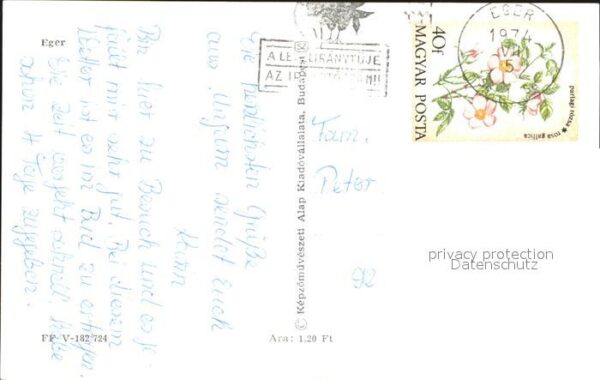 Eger
Die herzlichsten Grüße
aus Ungarn sendet Euch
Bin hier zu Besuch und es ge-
fällt mir sehr gut. Bei diesem
Wetter ist es im Bad zu ertragen.
Die Zeit vergeht schnell, habe
schon 4 Tage zugegeben.
FF V-182/724
© Képzőművészeti Alap Kiadóvállalata, Budapest
Ara: 1.20 Ft
Fam.
Peter
92
A LE IRÁNYTŰJE
AZ IR
EGER
1974
5
40f
MAGYAR POSTA
parlagi rózsa ★ rosa gallica
privacy protection
Datenschutz